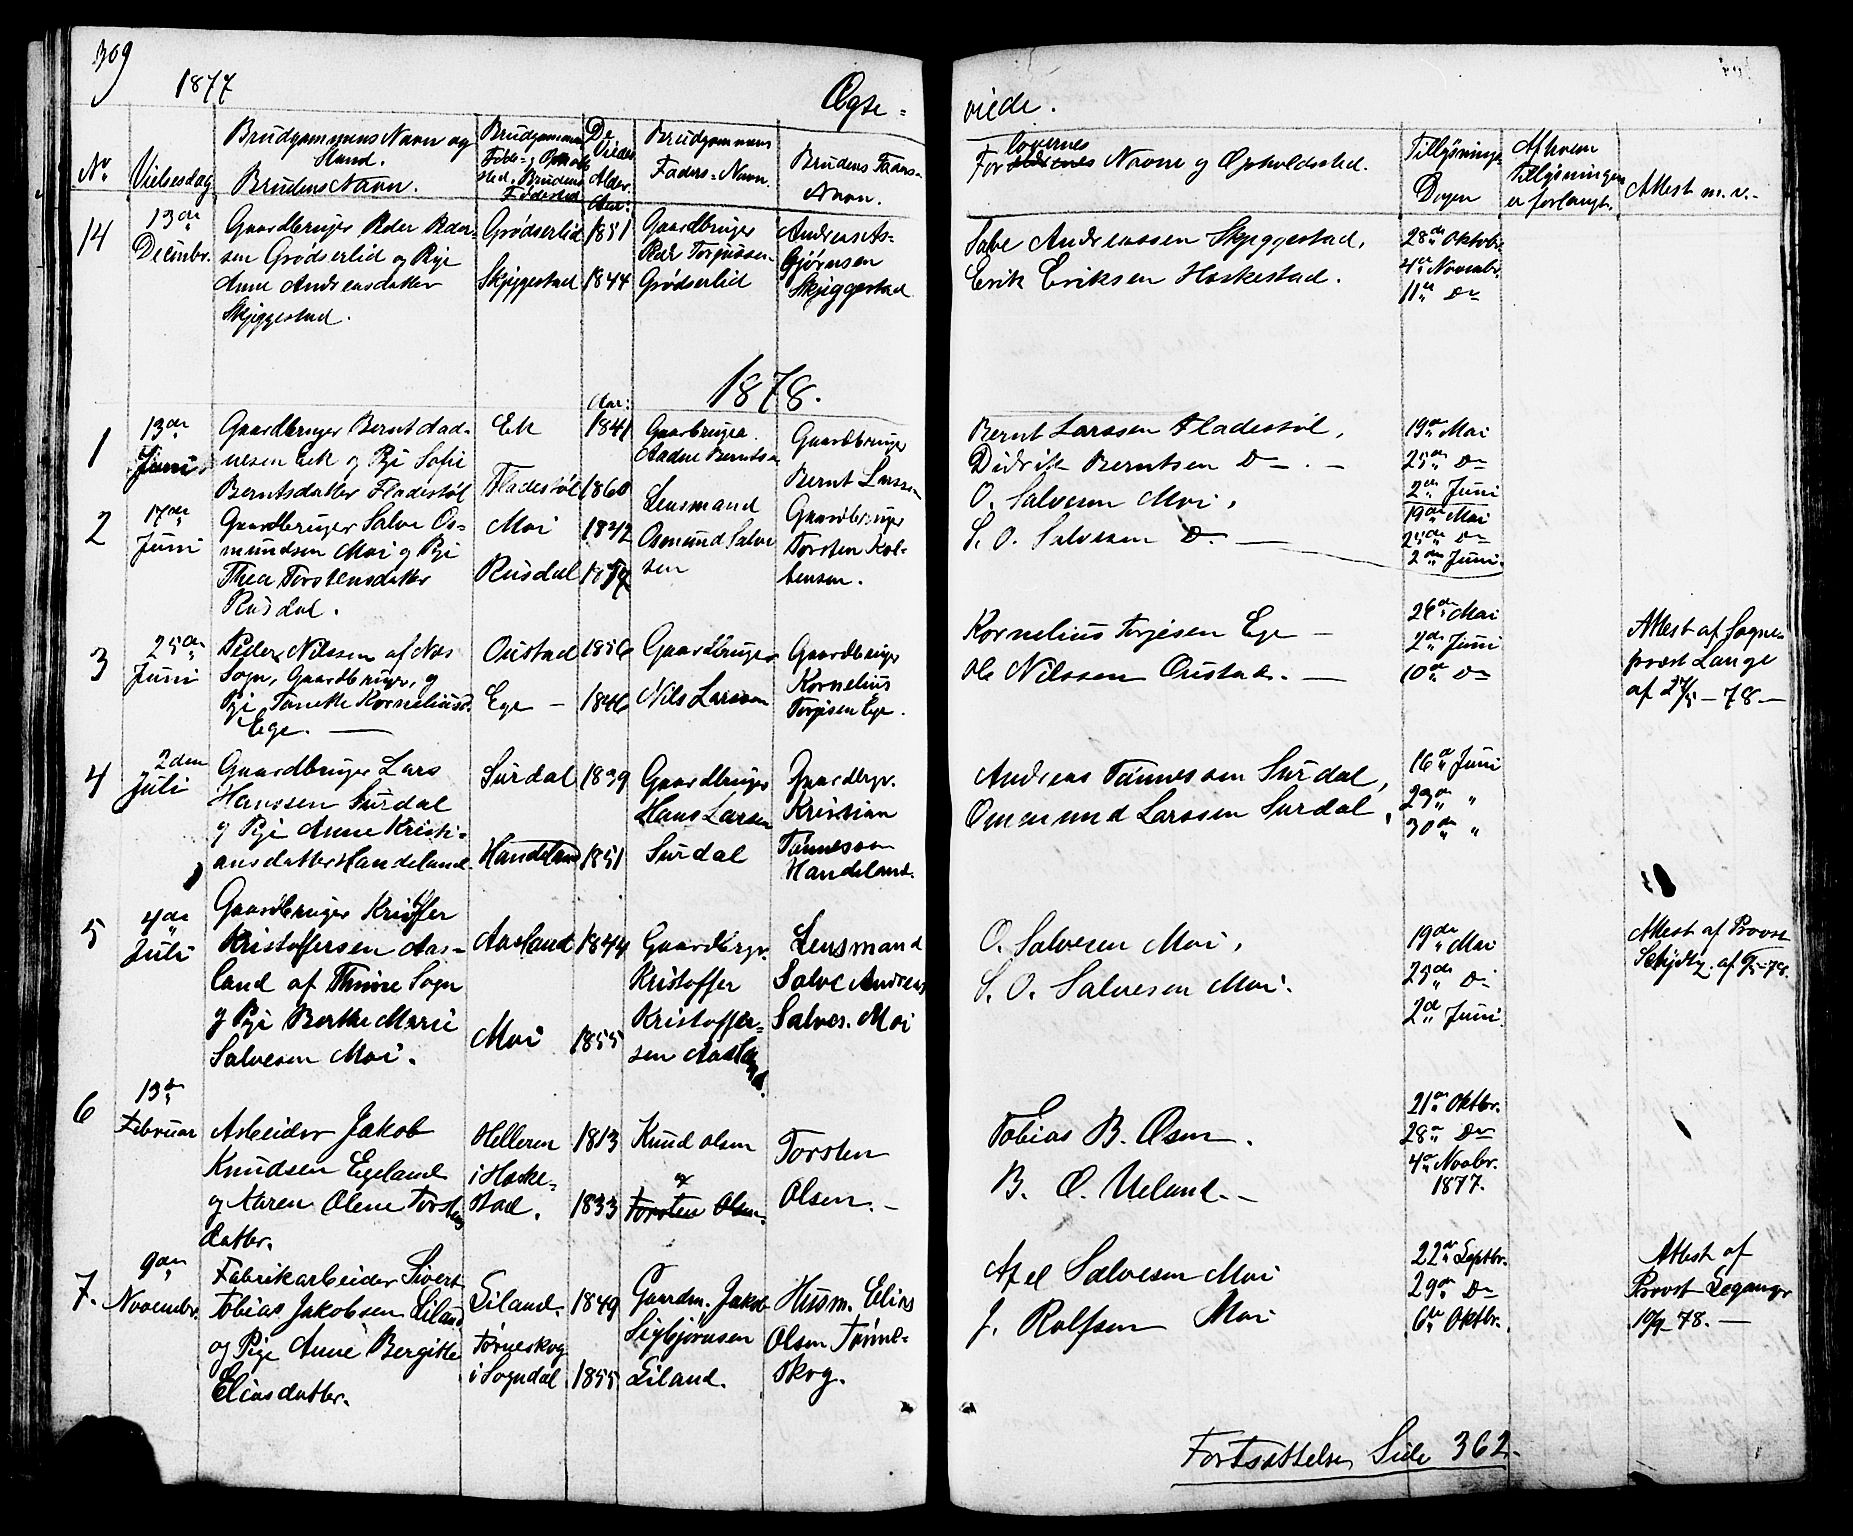 309
1877
Ægte-
viede.
No
Vielsesdag
Brudgommens Navn og
Stand.
Brudens Navn.
Brudgommens
Føde- og Opholds-
sted, Brudens
Fødested
De
Viedes
Alder.
Aar:
Brudgommens
Faders-Navn.
Brudens Faders-
Navn.
Forlovernes Navne og Opholdssted.
Tillysnings
Dagen
Af hvem
Tillysningen
er forlangt.
Attest m. v.
14
13de
Decembr.
Gaardbruger Peder Peder-
sen Grødserlid og Pige
Anne Andreasdatter
Skjeggestad.
Grødserlid
Skjeggestad
1851
1844
Gaardbruger
Peder Torjussen
Grødserlid
Andreas As-
bjørnsen
Skjeggestad
Salve Andreassen Skjeggestad,
Erik Eriksen Haskestad.
28de Oktobr.
4de Novembr.
11te Do
1878.
Aar:
1
13de
Juni
Gaardbruger Bernt Aad-
nesen Eek og Pige Sofie
Berntsdatter Fladestøl
Ek
Fladestøl
1841
1860
Gaarbruger
Aadne Berntsen
Gaardbruger
Bernt Larssen
Bernt Larssen Fladestøl,
Didrik Berntsen Do -
19de Mai
25de Do
2den Juni
2
17de
Juni
Gaardbruger Salve Os-
mundsen Moi og Pige
Thea Torstensdatter
Rusdal.
Moi
Rusdal
1842
Lensmand
Osmund Salve
sen
Gaardbruger
Torsten Kol-
bensen.
O. Salvesen Moi,
S. O. Salvesen Do -
19de Mai
25de Do
2den Juni.
3
25de
Juni
Peder Nilssen af Næs
Sogn, Gaardbruger, og
Pige Tancke Korneliusd.
Ege. -
Oustad
Ege -
1856
1846
Gaardbruger
Nils Larsson
Gaardbruger
Kornelius
Torjesen Ege.
Kornelius Torjesen Ege -
H. Nilssen Oustad. -
26de Mai
2den Juni
10de Do
Attest af Sogne-
præst Lange
af 27/5 - 78. -
4
2den
Juli
Gaardbruger Lars
Hanssen Surdal
og Pige Anne Kristi-
ansdatter Handeland
Surdal
Handeland
1839
1851
Gaardbruger
Hans Larsen
Surdal
Gaardbgr.
Kristian
Tønnessen
Handeland.
Andreas Tønnessen Surdal,
Ommund Larssen Surdal,
16de Juni
23de "
30de "
5
4de
Juli
Gaardbruger Kristoffer
Kristoffersen Aas-
land af Sogn
og Pige Berthe Marie
Salvesen Moi.
Aasland
Moi
1844
1855
Gaardbrgr.
Kristoffer
Kristoffer-
sen Aasland
Lensmand
Salve Andreas
Salves. Moi
O. Salvesen Moi,
S. O. Salvesen Moi.
19de Mai
25de Do
2d Juni.
Attest af Provst
6
13de
Februar
Arbeider Jakob
Knudsen Egeland
og Karen Olene Torstens
datter.
Helleren
i Haske-
stad.
1813
1833
Knud Olsen
Torsten Olsen.
Torsten
Olsen. -
Tobias B. Osen.
B. O. Ueland. -
21de Oktbr.
28de Do
4de Novbr.
1877.
7.
9den
Novembr.
Fabrikarbeider Sivert
Tobias Jakobsen Eiland
og Pige Anne Bergitte
Eliasdatter.
Eiland.
Tørneskog
i Sogndal
1849
1855
Gaardm. Jakob
Sigbjørnsen
Eiland.
Husm. Elias
Olsen Tørne-
skog.
Axel Salvesen Moi
J. Rolfsen Moi
22de Septbr.
29de Do
6te Oktbr.
Attest af
Provst
10/9 - 78. -
Fortsættelse, Side 362.